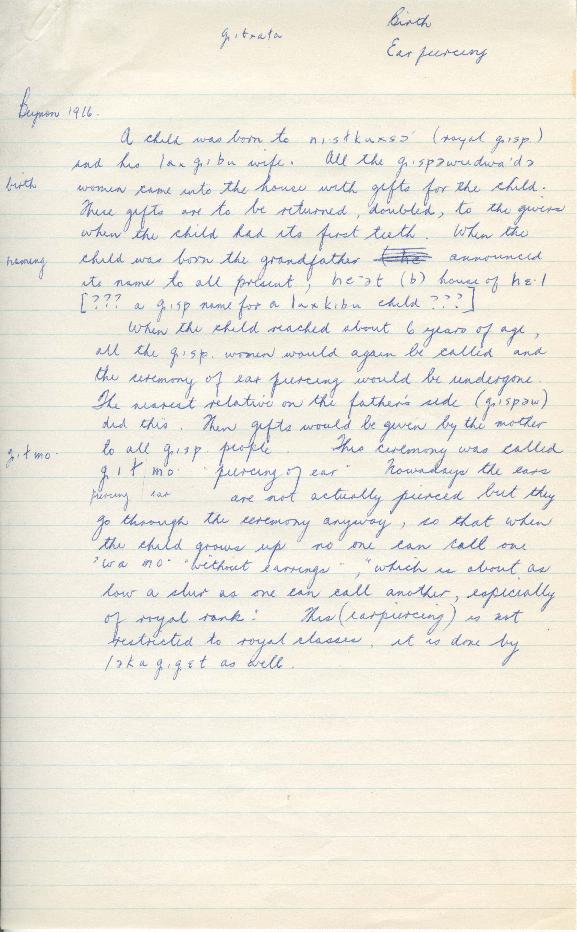 Birth
gitxala
Ear piercing
Beynon 1916.
A child was born to nistkuxsɔ' (royal gisp.)
and his laxgibu wife. All the gispəwudwa'də
birth women came into the house with gifts for the child.
These gifts are to be returned, doubled, to the givers
when the child had its first teeth. When the
naming child was born the grandfather announced
its name to all present, hɛ·ət (b) house of hɛ·l
[??? a gisp name for a laxkibu child ???]
When the child reached about 6 years of age,
all the gisp. women would again be called and
the ceremony of ear piercing would be undergone
The nearest relative on the father's side (gispəw)
did this. Then gifts would be given by the mother
gitmo. to all gisp. people. This ceremony was called
git mo "piercing of ear" Nowadays the ears
piercing ear are not actually pierced but they
go through the ceremony anyway, so that when
the child grows up no one can call one
"wa mo" "without earrings", "which is about as
low a slur as one can call another, especially
of royal rank". This (earpiercing) is not
restricted to royal classes, it is done by
ləkagigɛt as well.